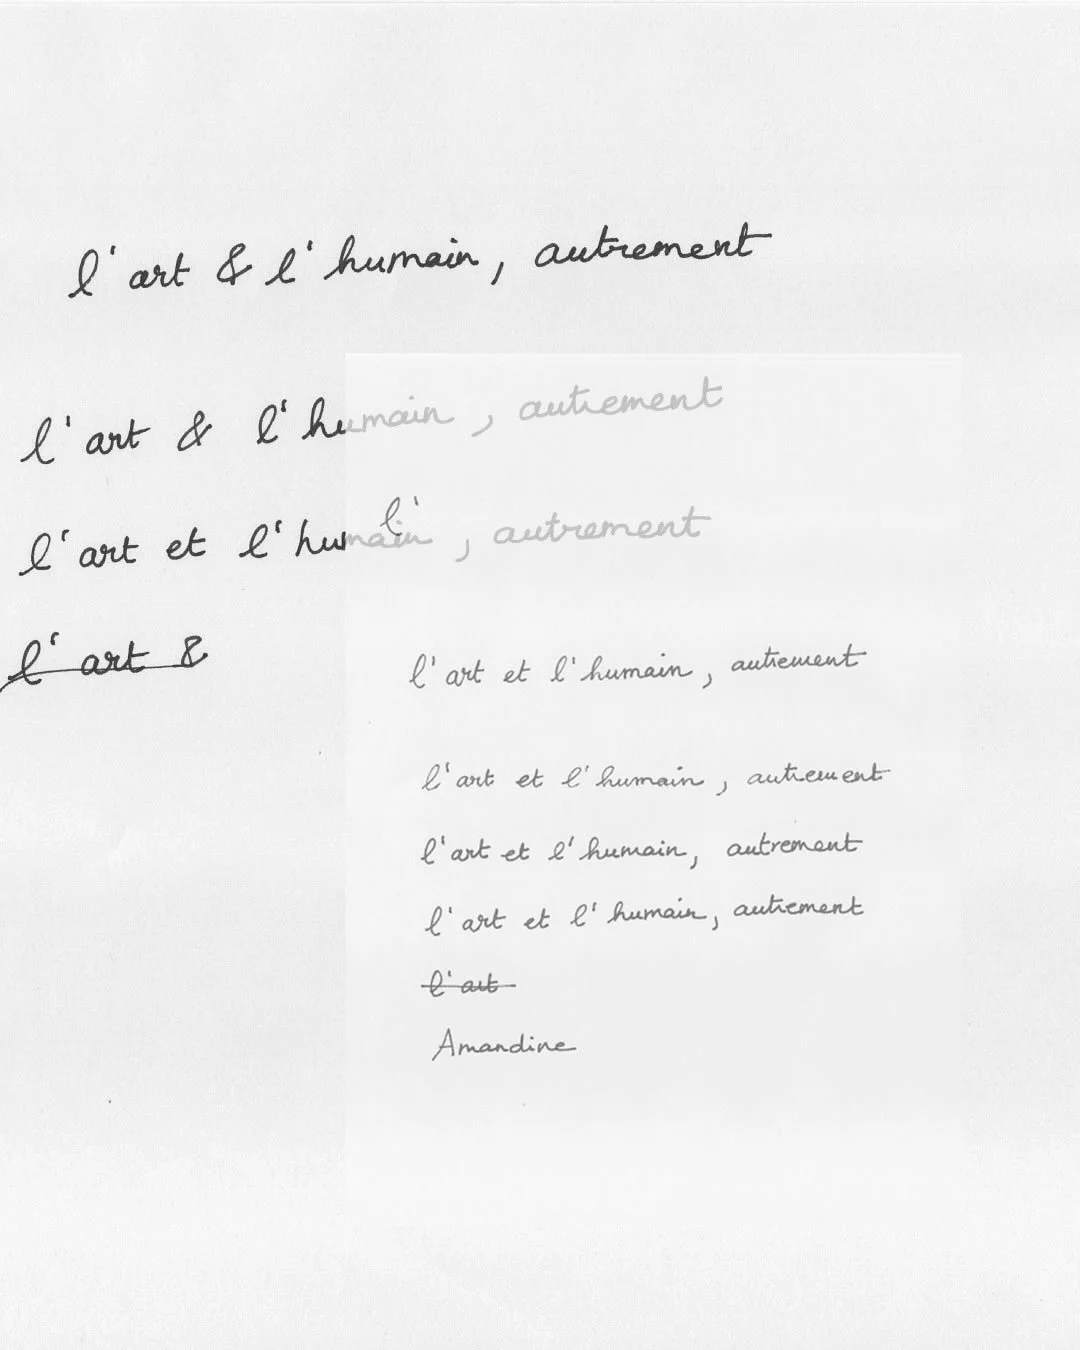 l'art & l'humain, autrement
l'art & l'humain, autrement
l'
l'art et l'humain, autrement
l'art &
l'art et l'humain, autrement
l'art et l'humain, autrement
l'art et l'humain, autrement
l'art et l'humain, autrement
l'art
Amandine